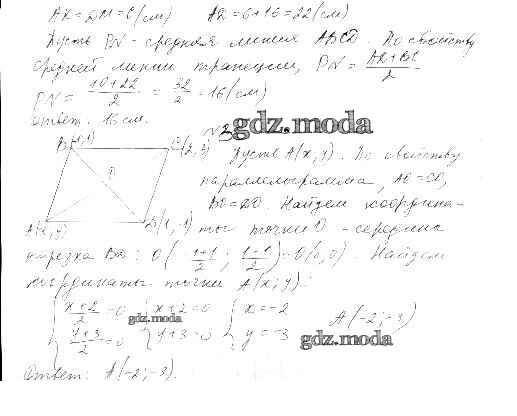 AK = DM = 6 (см) AD = 6+16 = 22 (см)
Пусть PN - средняя линия ABCD. По свойству
средней линии трапеции, PN = AD+BC / 2
PN = 10+22 / 2 = 32 / 2 = 16 (см)
Ответ: 16 см.
№2
gdz.moda
C(2,3)
Пусть A(x,y). По свойству
параллелограмма, AO=CO,
BO=OD. Найдем координа-
A(x,y) D(1,-1) ты точки O - середина
отрезка BD: O( ; 1-1 / 2) = O(0,0). Найдем
координаты точки A(x;y):
{ x+2 / 2 = 0 { x+2=0 { x=-2
{ y+3 / 2 = 0 { y+3=0 { y=-3 A(-2;-3)
gdz.moda
gdz.moda
Ответ: A(-2;-3).